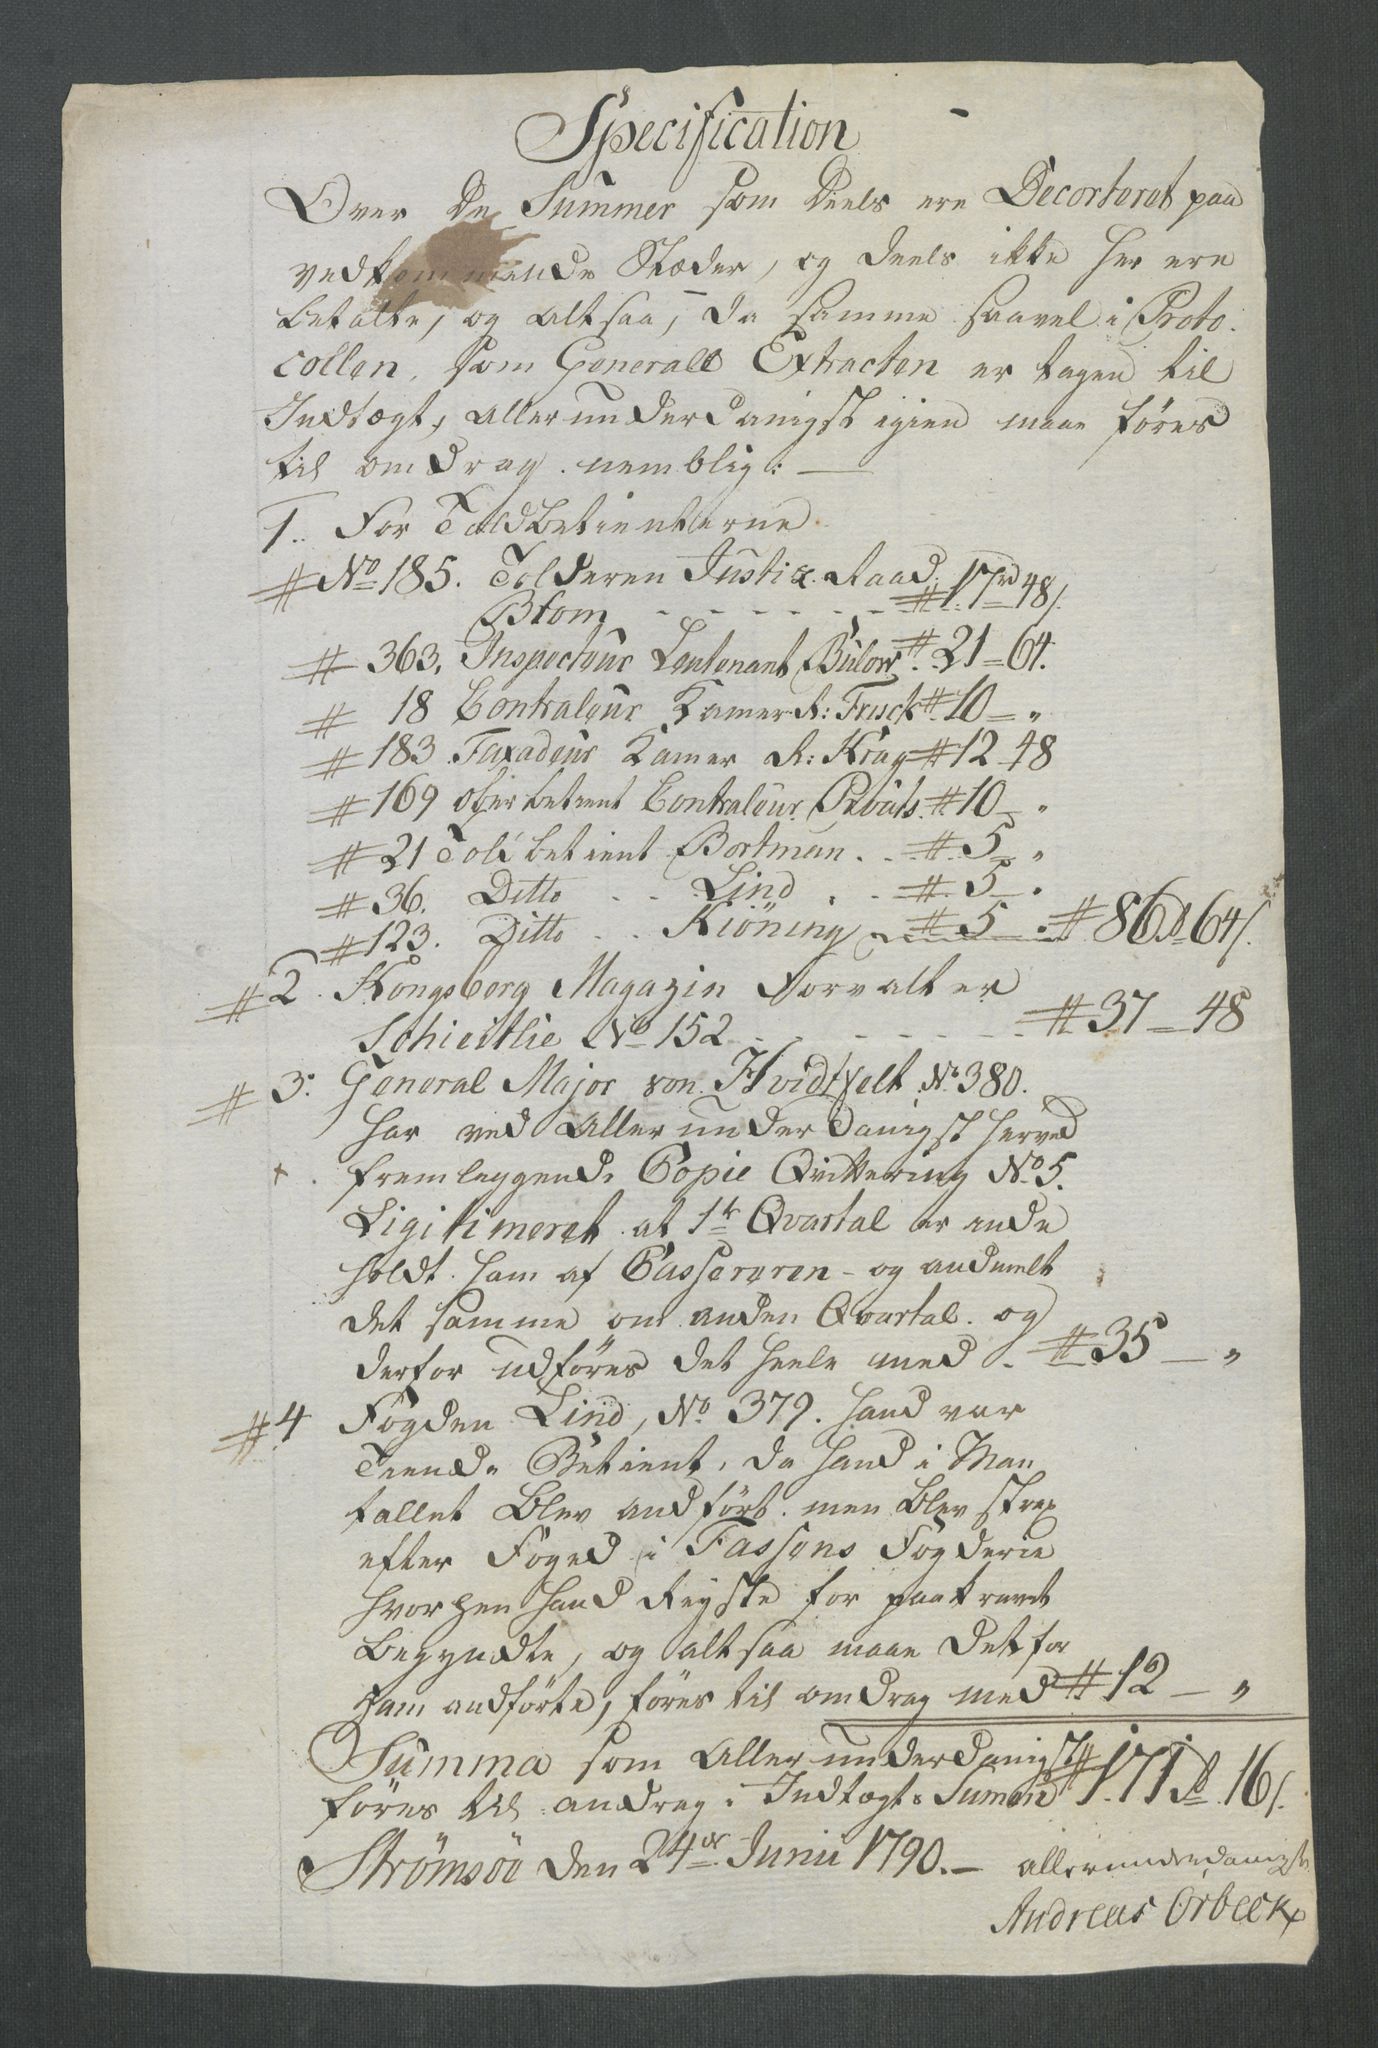 Specification
Over de Summer som deels ere Decorteret paa
vedkommende Stæder, og deels ikke her ere
betalte, og altsaa, da samme saavel i Proto-
collen, som Generall Extracten er tagen til
Indtægt, allerunderdanigst igien maae føres
til omdrag. nemblig: —
1. For Toldbetienterne
# No 185. Tolderen Justiz Raad
Blom - - - - - - # 17rd 48s.
# 363. Inspecteur Leutenant Bülow # 21 = 64.
# 18 Contraleur Kamer R: Frisch # 10 — "
# 183 Taxadeur Kamer R: Krag # 12 - 48
# 169 Ober betient Contraleur # 10 — "
# 21 Tolbetient Bortman . . # 5 — "
# 36. Ditto . . Lind . . # 5 — "
# 123. Ditto . . Kiöning # 5 . # 86rd 64s.
# 2. Kongsberg Magazin Forvalter
Schiestlie No 152 - - - - - # 37 = 48
# 3. General Major von Hvidtfelt No 380.
har ved allerunderdanigst herved
+ . fremleggende Copie Qvittering No 5.
Ligitimeret at 1te Qvartal er inde
holdt ham af Cassereren - og andmelt
det samme om anden Qvartal. og
derfor udføres det heele med - # 35 — "
# 4 Fogden Lind, No 379. hand var
Tiende Betient, da hand i Man
tallet blev andført. men blev strax
efter Foged i Fossens Fogderie
hvorhen hand Reyste før paakravet
begyndte, og altsaa maae det for
ham andførte, føres til omdrag med # 12 — "
Summa som allerunderdanigst
føres til andrag i Indtægts Summen # 171rd 16s.
Strömsöe den 24de Junii 1790. — allerunderdanigst
Andreas Orbeck